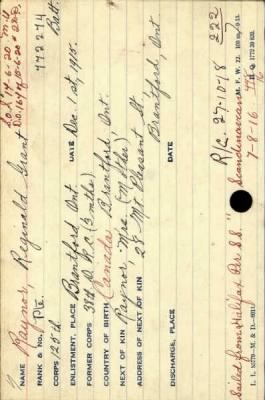 S.O.S. 17-6-20 M.D. 2
D.O. 167 of 15-6-20 #2 D.D.
NAME Raynor, Reginald Grant
RANK & NO. Pte. 772274
CORPS 125th Batt.
ENLISTMENT, PLACE Brantford Ont DATE Dec. 1st, 1915.
FORMER CORPS 38th D.R.C. (3 mths)
COUNTRY OF BIRTH Canada Brantford Ont.
NEXT OF KIN Raynor, Mrs (Mother)
ADDRESS OF NEXT OF KIN 28 Mt Pleasant St
Brantford, Ont
DISCHARGE, PLACE DATE
R/C. 27-10-18 222
Sailed from Halifax Per S.S. "Scandinavian"
7-8-16